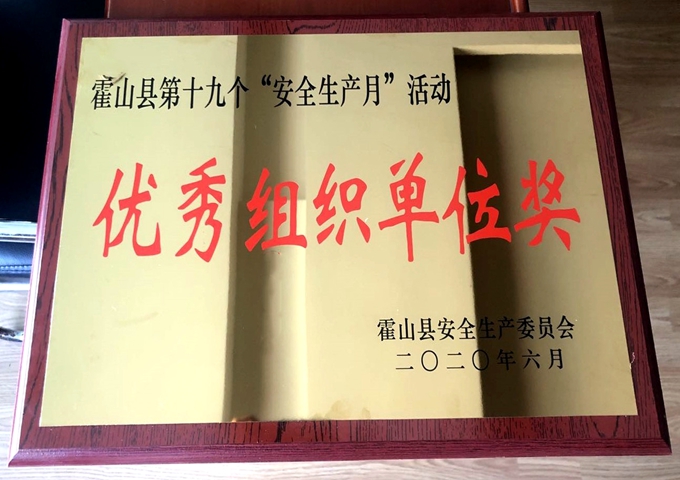 霍山县第十九个“安全生产月”活动
优秀组织单位奖
霍山县安全生产委员会
二〇二〇年六月